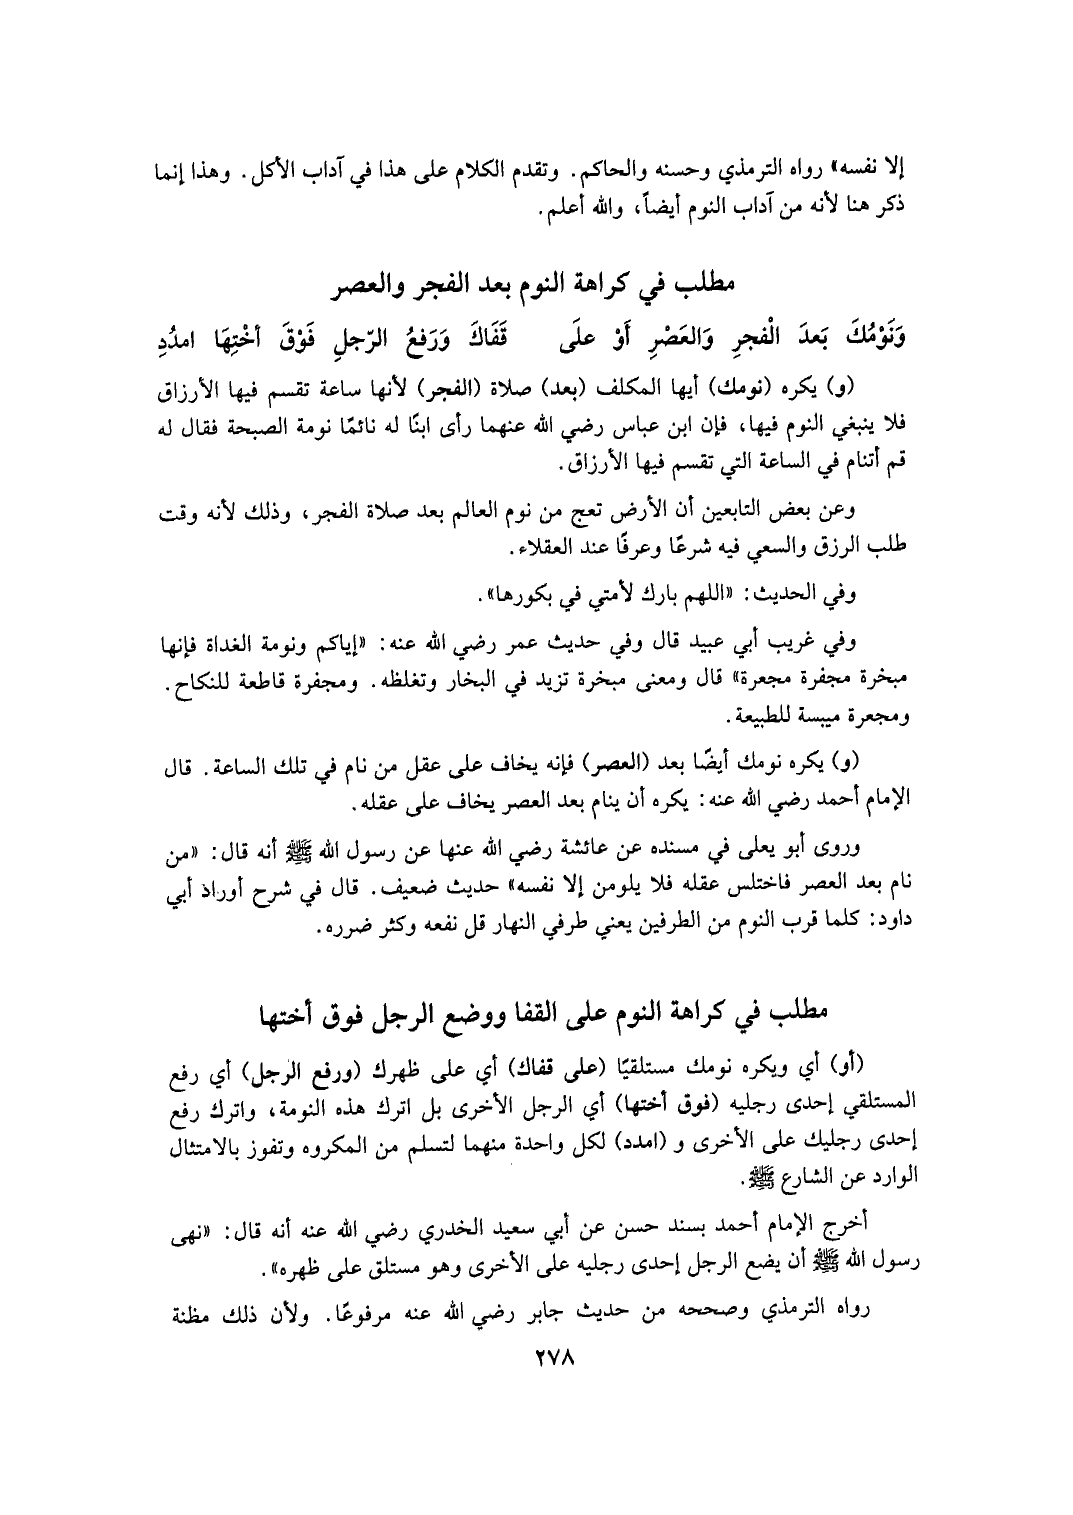 إلا نفسه» رواه الترمذي وحسنه والحاكم. وتقدم الكلام على هذا في آداب الأكل. وهذا إنما
ذكر هنا لأنه من آداب النوم أيضاً، والله أعلم.
مطلب في كراهة النوم بعد الفجر والعصر
وَنَوْمُكَ بَعدَ الْفجرِ وَالعَصْرِ أَوْ علَى قَفَاكَ وَرَفعُ الرّجلِ فَوْقَ أخْتِهَا امدُدِ
(و) يكره (نومك) أيها المكلف (بعد) صلاة (الفجر) لأنها ساعة تقسم فيها الأرزاق
فلا ينبغي النوم فيها، فإن ابن عباس رضي الله عنهما رأى ابنًا له نائمًا نومة الصبحة فقال له
قم أتنام في الساعة التي تقسم فيها الأرزاق.
وعن بعض التابعين أن الأرض تعج من نوم العالم بعد صلاة الفجر، وذلك لأنه وقت
طلب الرزق والسعي فيه شرعًا وعرفًا عند العقلاء.
وفي الحديث: «اللهم بارك لأمتي في بكورها».
وفي غريب أبي عبيد قال وفي حديث عمر رضي الله عنه: «إياكم ونومة الغداة فإنها
مبخرة مجفرة مجعرة» قال ومعنى مبخرة تزيد في البخار وتغلظه. ومجفرة قاطعة للنكاح.
ومجعرة ميبسة للطبيعة.
(و) يكره نومك أيضًا بعد (العصر) فإنه يخاف على عقل من نام في تلك الساعة. قال
الإمام أحمد رضي الله عنه: يكره أن ينام بعد العصر يخاف على عقله.
وروى أبو يعلى في مسنده عن عائشة رضي الله عنها عن رسول الله ﷺ أنه قال: «من
نام بعد العصر فاختلس عقله فلا يلومن إلا نفسه» حديث ضعيف. قال في شرح أوراذ أبي
داود: كلما قرب النوم من الطرفين يعني طرفي النهار قل نفعه وكثر ضرره.
مطلب في كراهة النوم على القفا ووضع الرجل فوق أختها
(أو) أي ويكره نومك مستلقيًا (على قفاك) أي على ظهرك (ورفع الرجل) أي رفع
المستلقي إحدى رجليه (فوق أختها) أي الرجل الأخرى بل اترك هذه النومة، واترك رفع
إحدى رجليك على الأخرى و (امدد) لكل واحدة منهما لتسلم من المكروه وتفوز بالامتثال
الوارد عن الشارع ﷺ.
أخرج الإمام أحمد بسند حسن عن أبي سعيد الخدري رضي الله عنه أنه قال: «نهى
رسول الله ﷺ أن يضع الرجل إحدى رجليه على الأخرى وهو مستلق على ظهره».
رواه الترمذي وصححه من حديث جابر رضي الله عنه مرفوعًا. ولأن ذلك مظنة
٢٧٨